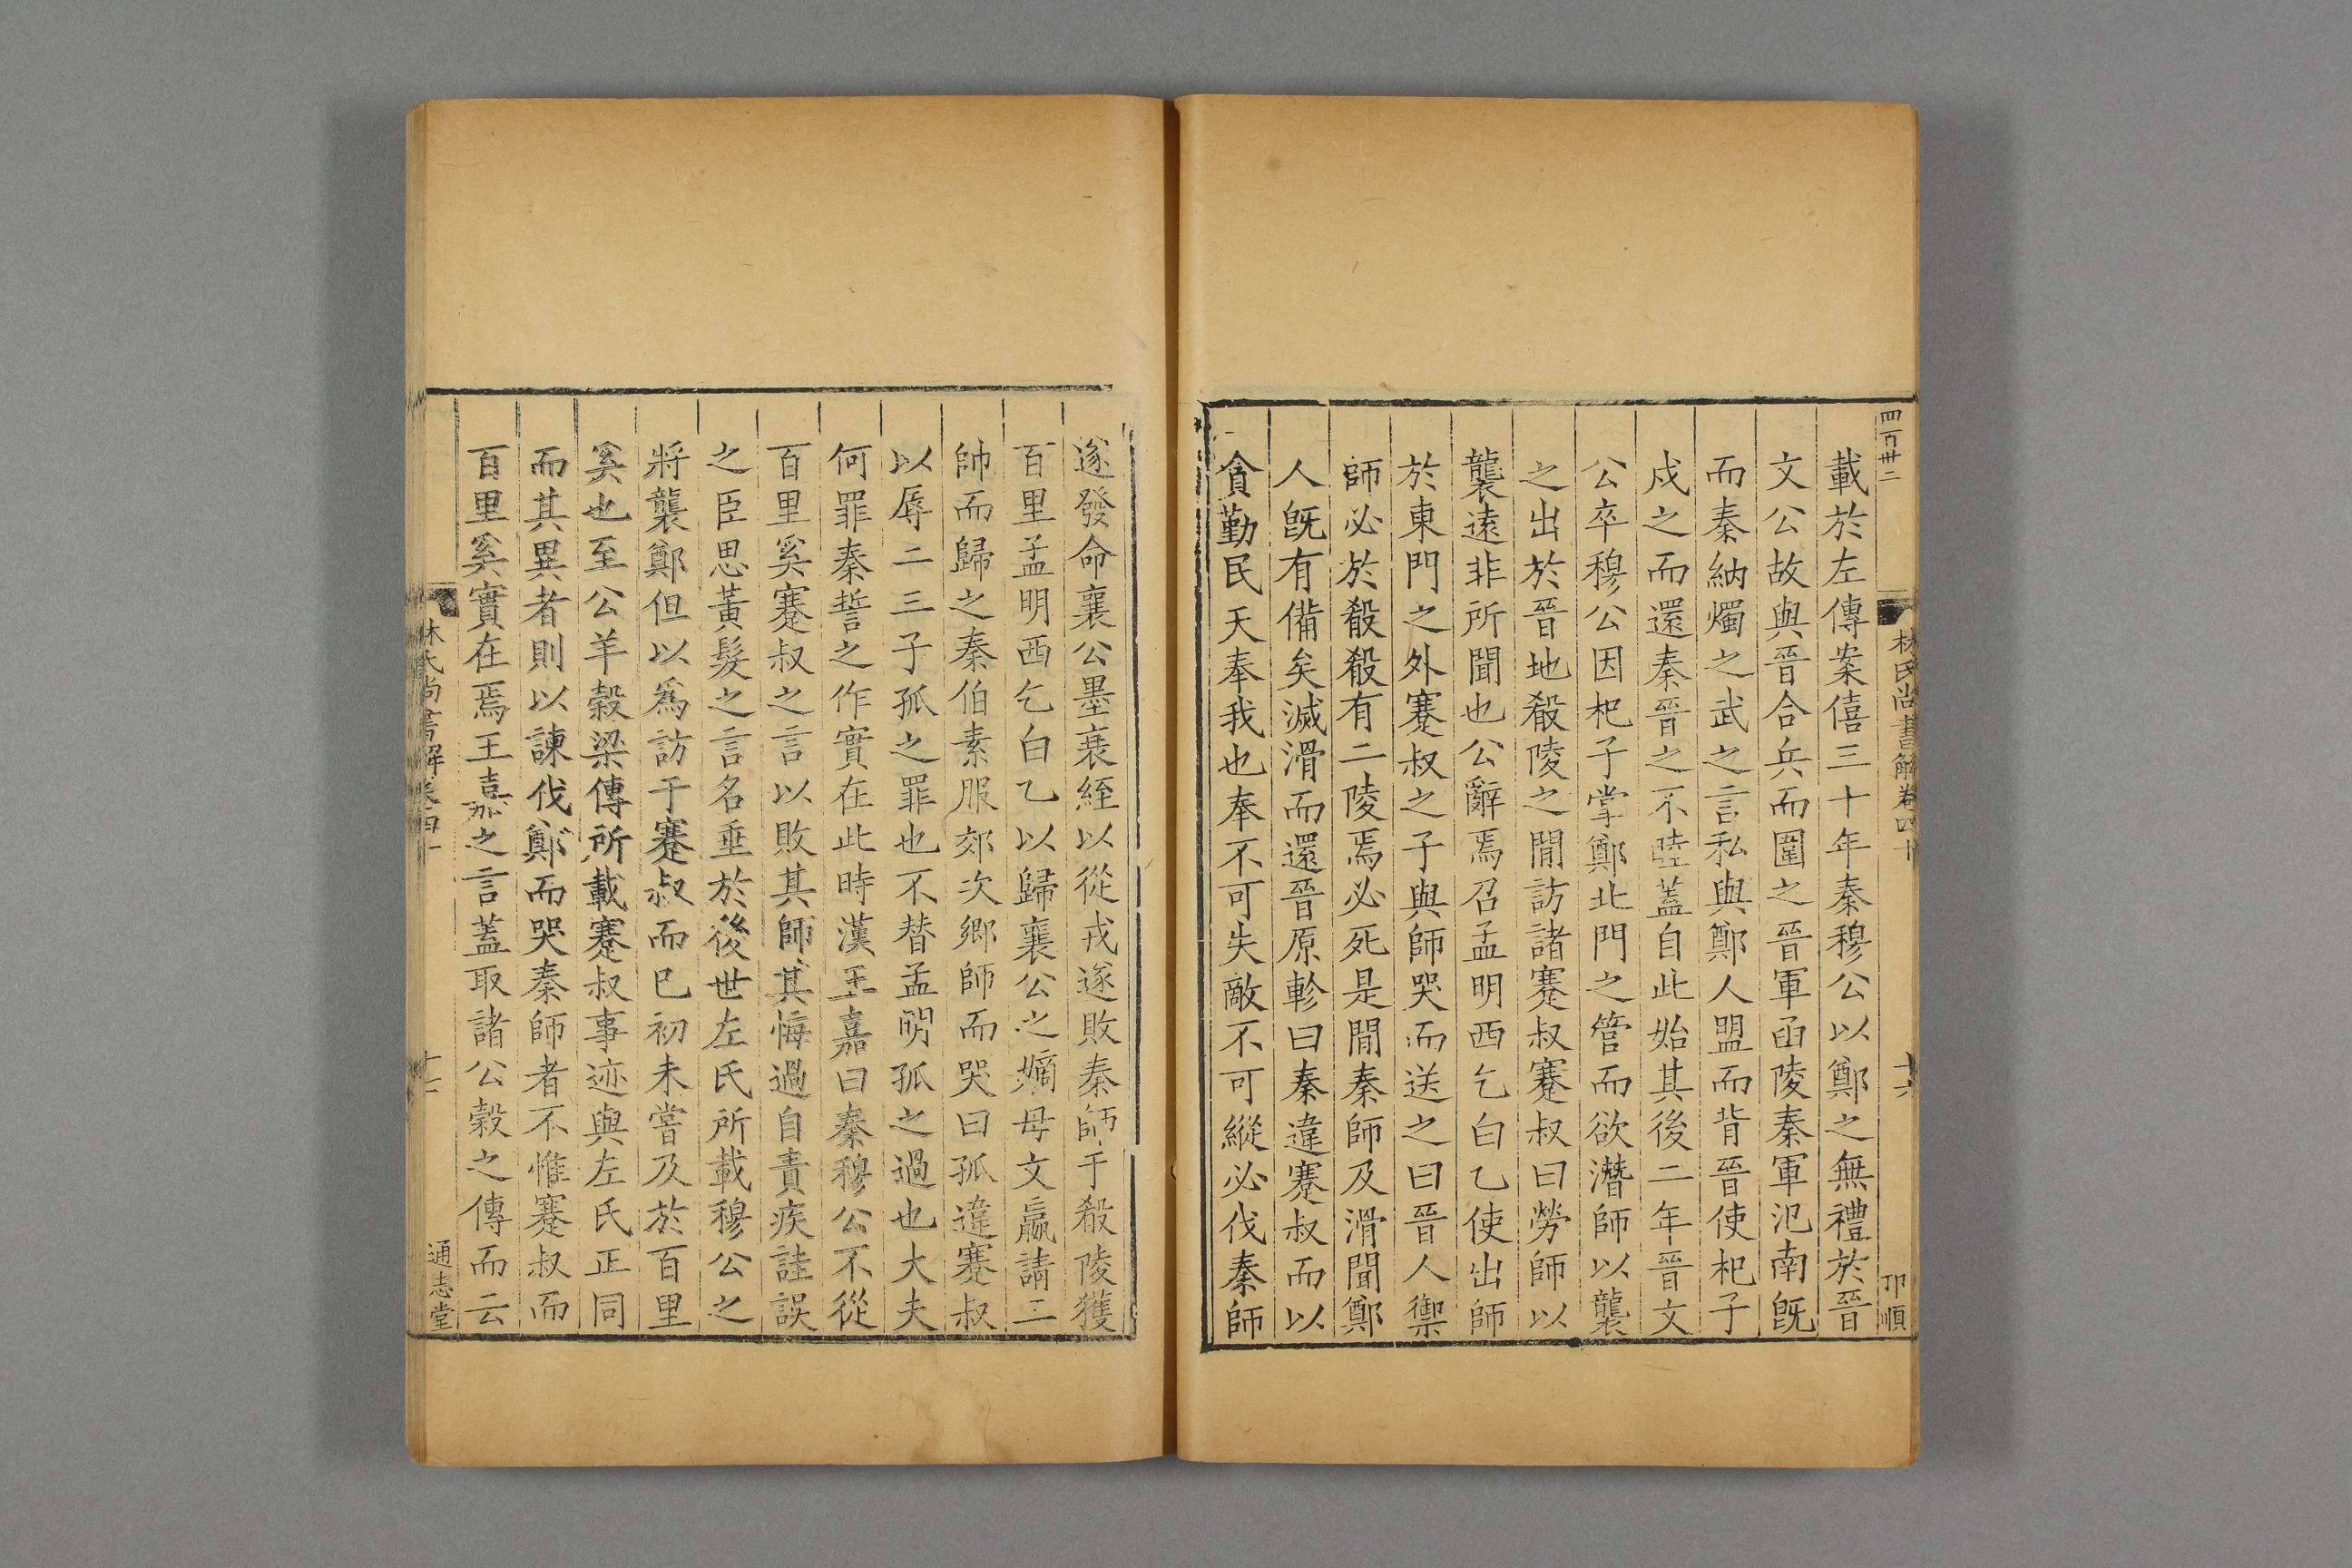 四百廿二
林氏尚書解卷四十
十六
卬順
載於左傳案僖三十年秦穆公以鄭之無禮於晉
文公故與晉合兵而圍之晉軍函陵秦軍氾南旣
而秦納燭之武之言私與鄭人盟而背晉使杞子
戍之而還秦晉之不睦蓋自此始其後二年晉文
公卒穆公因杞子掌鄭北門之管而欲潛師以襲
之出於晉地殽陵之閒訪諸蹇叔蹇叔曰勞師以
襲遠非所聞也公辭焉召孟明西乞白乙使出師
於東門之外蹇叔之子與師哭而送之曰晉人禦
師必於殽殽有二陵焉必死是閒秦師及滑聞鄭
人旣有備矣滅滑而還晉原軫曰秦違蹇叔而以
貪勤民天奉我也奉不可失敵不可縱必伐秦師
遂發命襄公墨衰絰以從戎遂敗秦師于殽陵獲
百里孟明西乞白乙以歸襄公之嫡母文嬴請三
帥而歸之秦伯素服郊次鄉師而哭曰孤違蹇叔
以辱二三子孤之罪也不替孟明孤之過也大夫
何罪秦誓之作實在此時漢王嘉曰秦穆公不從
百里奚蹇叔之言以敗其師其悔過自責疾詿誤
之臣思黃髮之言名垂於後世左氏所載穆公之
將襲鄭但以爲訪于蹇叔而已初未嘗及於百里
奚也至公羊穀梁傳所載蹇叔事迹與左氏正同
而其異者則以諫伐鄭而哭秦師者不惟蹇叔而
百里奚實在焉王嘉之言蓋取諸公穀之傳而云
林氏尚書解卷四十
十七
通志堂